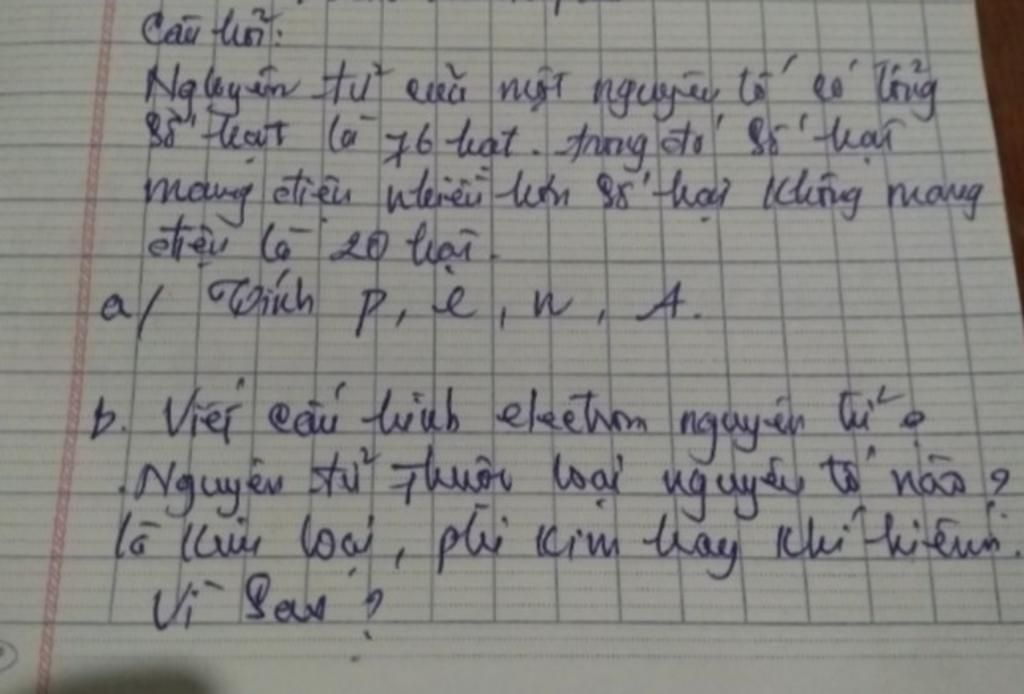 Câu hỏi:
Nguyên tử của một nguyên tố có tổng
số hạt là 76 hạt. trong đó số hạt
mang điện nhiều hơn số hạt không mang
điện là 20 hạt.
a/ Tính p, e, n, A.
b. Viết cấu hình electron nguyên tử?
Nguyên tử thuộc loại nguyên tố nào?
là kim loại, phi kim hay khí hiếm.
Vì sao?